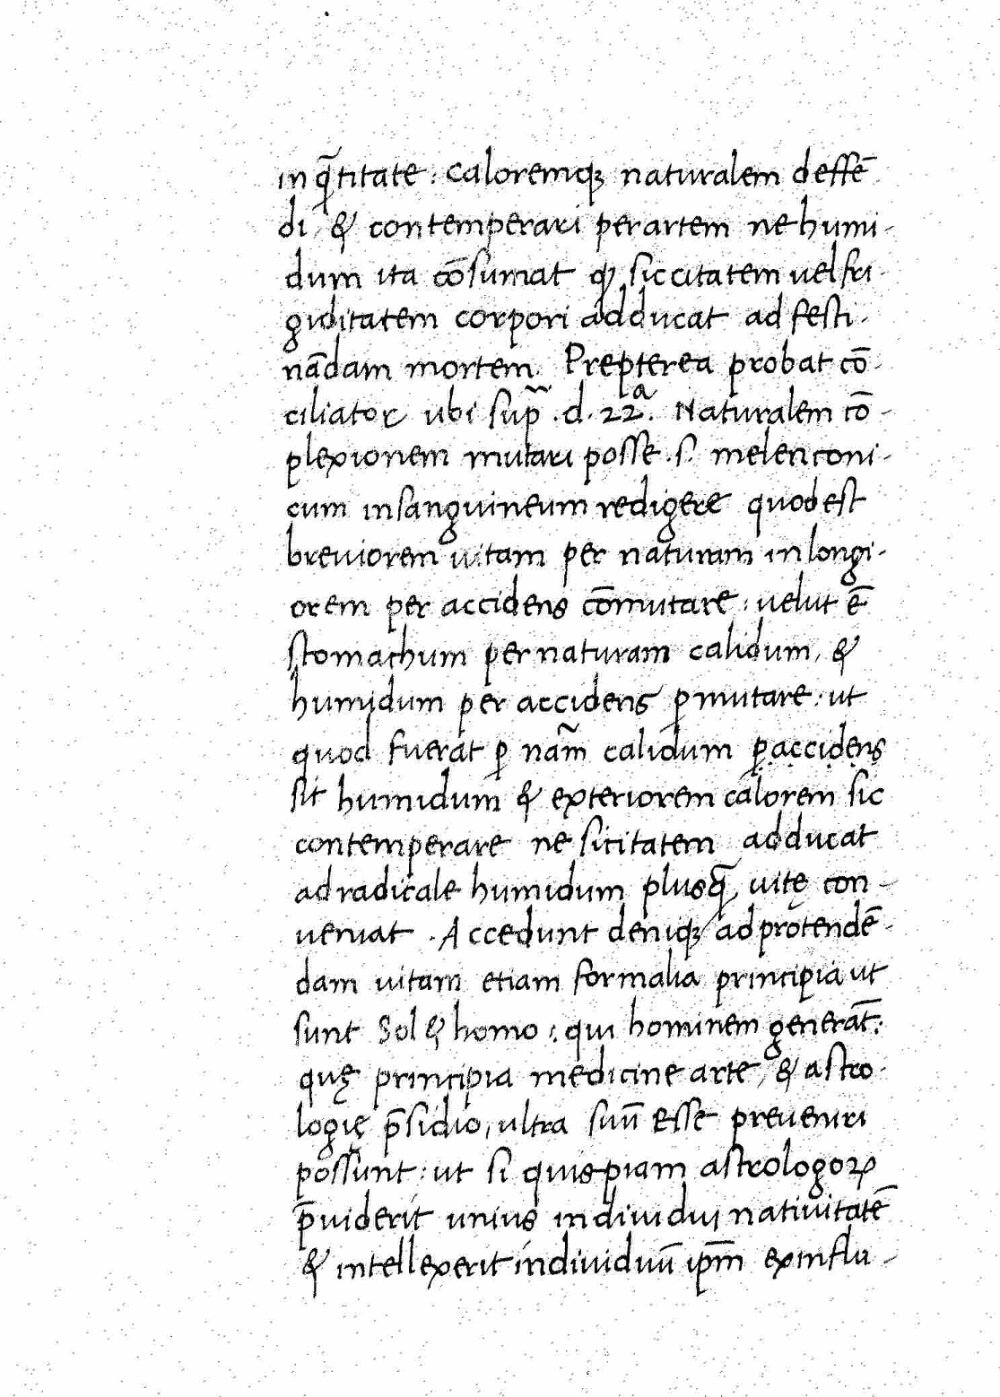 in q̄titate : caloremqꝫ naturalem deffē
di, & contemperari per artem ne humi-
dum ita cōsumat qꝫ siccitatem uel fri-
giditatem corpori adducat ad festi-
nādam mortem. Prepterea probat cō-
ciliator ubi sup̃ .d. 22ª. Naturalem cō-
plexionem mutari posse .s. melenconi-
cum in sanguineum redigere quod est
breuiorem uitam per naturam in longi-
orem per accidens cōmutare : uelut ē
stomachum per naturam calidum, &
humidum per accidens ꝑmutare : ut
quod fuerat ꝑ nam̃ calidum ꝑ accidens
sit humidum & exteriorem calorem sic
contemperare ne sicitatem adducat
ad radicale humidum plusq̄ uitę con-
ueniat . Accedunt deniqꝫ ad protendē-
dam uitam etiam formalia principia ut
sunt Sol & homo : qui hominem generāt :
quę principia medicine arte, & astro-
logię p̄sidio, ultra suū esse preueniri
possunt : ut si quispiam astrologoꝝ
p̄uiderit unius indiuidui natiuitatē
& intellexerit indiuiduū ip̄m ex influ-